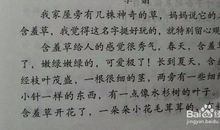 我家屋旁有几株神奇的草，妈妈说它的
含羞草，我觉得这名字挺好玩的，就特别留心观
含羞草给人的感觉很秀气。春天，含羞草
了，嫩绿嫩绿的，可爱极了！长到夏天，含
经枝叶茂盛，一根很细的茎，两旁有一些细
小针一样的东西，有一点像水杉树的叶子。
含羞草开花了，一朵朵小花毛茸茸的，
Baidu 经验
jingyan.baidu.com